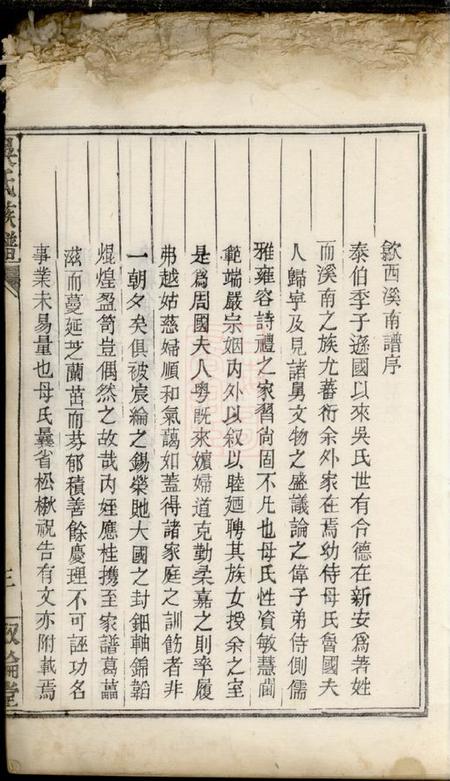 歙西溪南譜序
泰伯季子遜國以來吳氏世有令德在新安爲著姓
而溪南之族尤蕃衍余外家在焉幼侍母氏魯國夫
人歸寧及見諸舅文物之盛議論之偉子弟侍側儒
雅雍容詩禮之家習尚固不凡也母氏性資敏慧閫
範端嚴宗姻內外以叙以睦廻聘其族女授余之室
是爲周國夫人粤旣來嬪婦道克勤柔嘉之則率履
弗越姑慈婦順和氣藹如蓋得諸家庭之訓飭者非
一朝夕矣俱被宸綸之錫榮貤大國之封鈿軸錦韜
焜煌盈笥豈偶然之故哉內姪應性携至家譜葛藟
滋而蔓延芝蘭茁而芬郁積善餘慶理不可誣功名
事業未易量也母氏曩省松楸祝告有文亦附載焉
吳氏族譜
三
叙倫堂